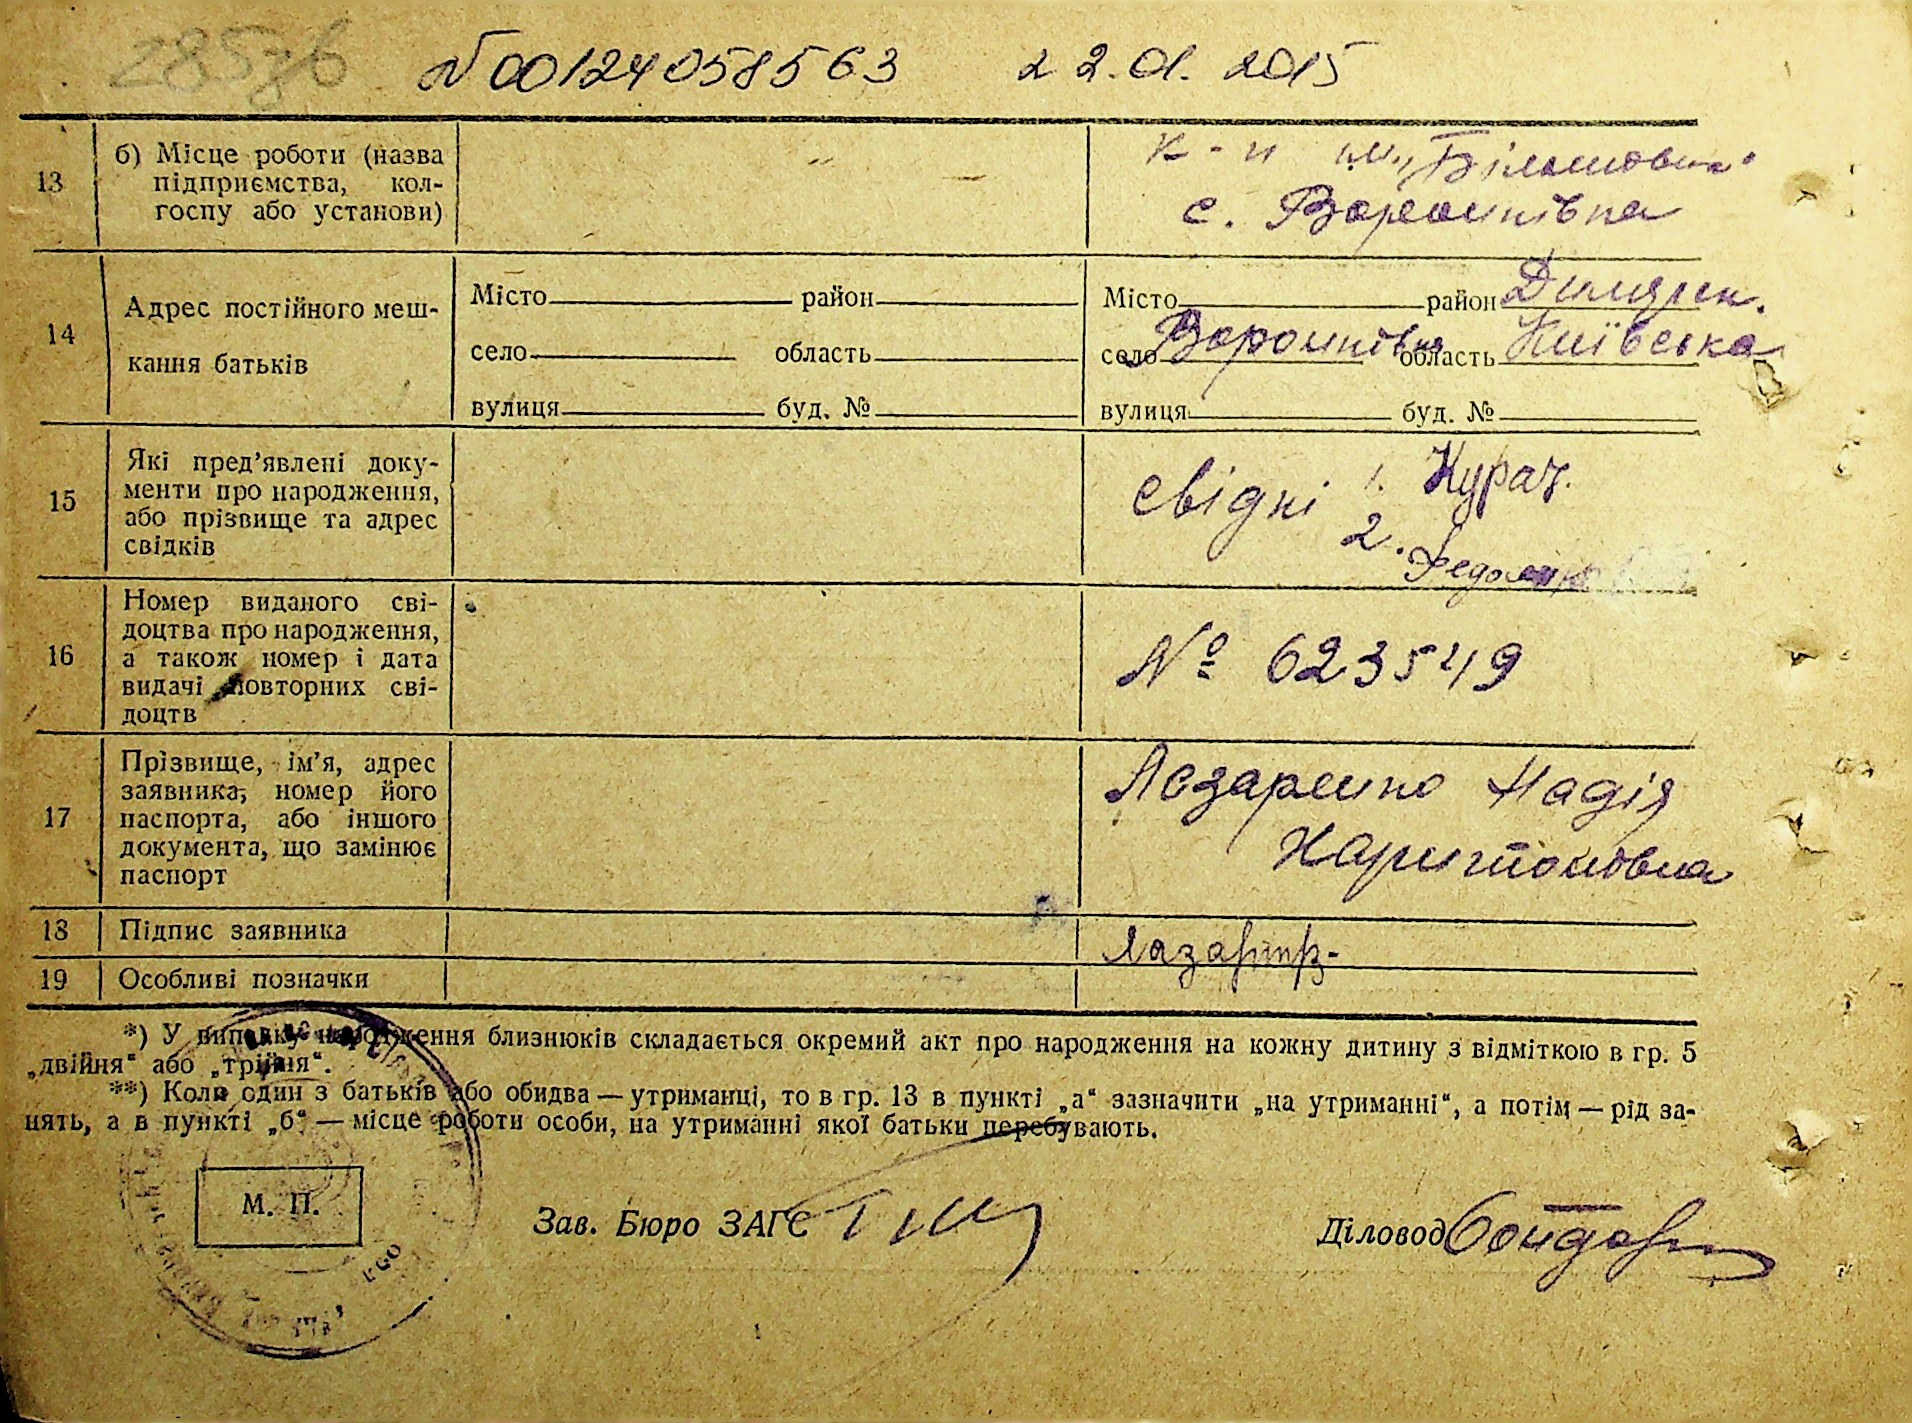 28576
№ 001240585563 22.01.2015
13
б) Місце роботи (назва
підприємства, кол-
госпу або установи)
к-п ім.
с. Воронківка
14
Адрес постійного меш-
кання батьків
Місто район
село область
вулиця буд. №
Місто район Димерск.
село Воронківка область Київська
вулиця буд. №
15
Які пред’явлені доку-
менти про народження,
або прізвище та адрес
свідків
свідкі 1. Курач.
2.
16
Номер виданого сві-
доцтва про народження,
а також номер і дата
видачі повторних сві-
доцтв
№ 623549
17
Прізвище, ім’я, адрес
заявника, номер його
паспорта, або іншого
документа, що замінює
паспорт
Лазаренко Надія
Харитоновна
18
Підпис заявника
19
Особливі позначки
*) У випадку народження близнюків складається окремий акт про народження на кожну дитину з відміткою в гр. 5
„двійня“ або „трійня“.
**) Коли один з батьків або обидва — утриманці, то в гр. 13 в пункті „а“ зазначити „на утриманні“, а потім — рід за-
нять, а в пункті „б“ — місце роботи особи, на утриманні якої батьки перебувають.
М. П.
Зав. Бюро ЗАГС
Діловод